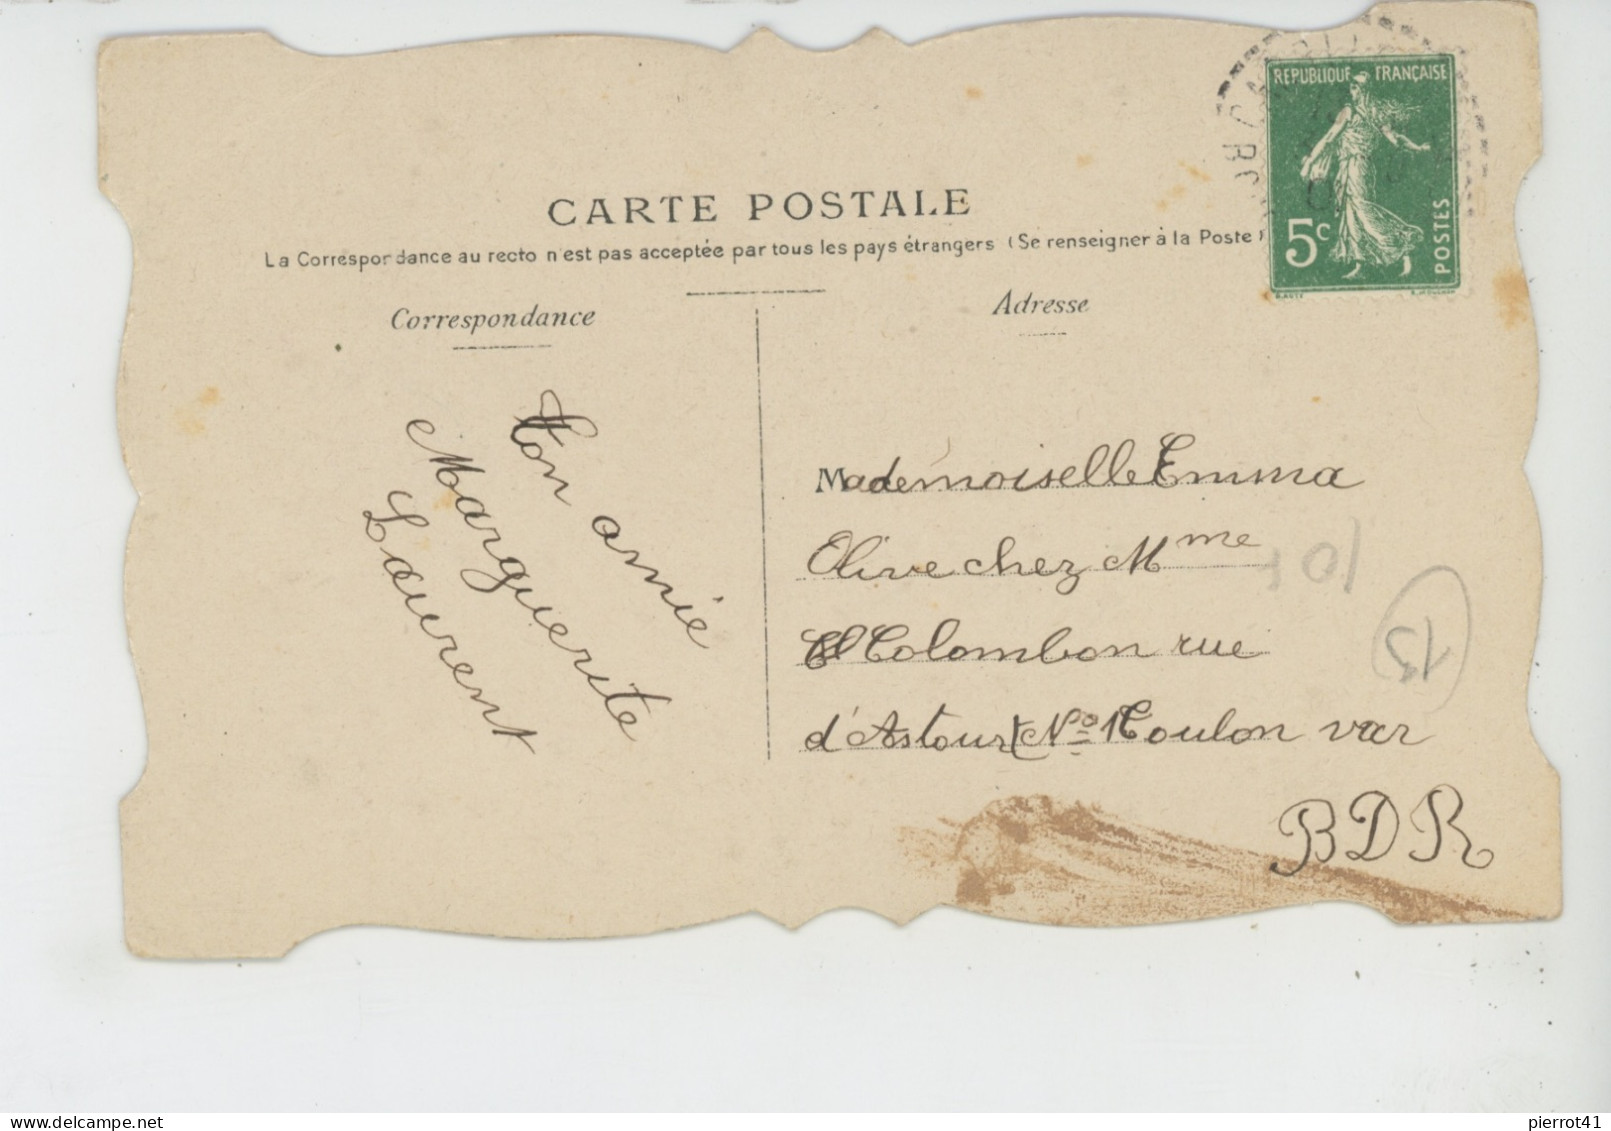 RÉPUBLIQUE FRANÇAISE
5c
POSTES
CARTE POSTALE
La Correspondance au recto n'est pas acceptée par tous les pays étrangers (Se renseigner à la Poste)
Correspondance
Ton amie
Marguerite
Laurent
Adresse
Mademoiselle Emma
Olive chez Mme
Colombon rue
d'Astour No 1 Toulon var
BDR
10 F
13
pierrot41